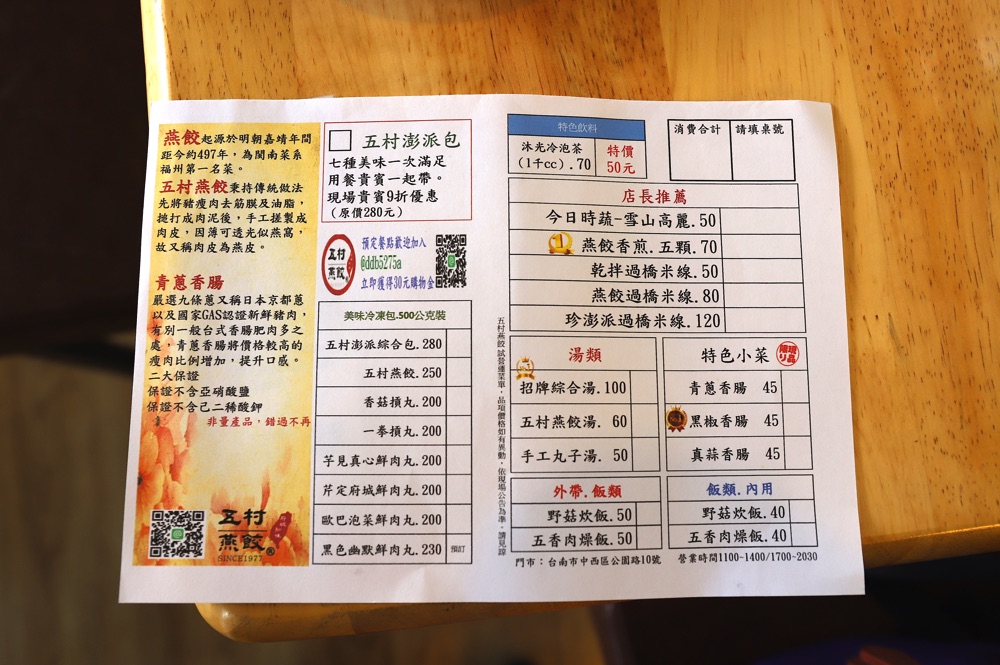 燕餃起源於明朝嘉靖年間
距今約497年，為閩南菜系
福州第一名菜。
五村燕餃秉持傳統做法
先將豬瘦肉去筋膜及油脂，
搥打成肉泥後，手工搓製成
肉皮，因薄可透光似燕窩，
故又稱肉皮為燕皮。
青蔥香腸
嚴選九條蔥又稱日本京都蔥
以及國家GAS認證新鮮豬肉，
有別一般台式香腸肥肉多之
處，青蔥香腸將價格較高的
瘦肉比例增加，提升口感。
二大保證
保證不含亞硝酸鹽
保證不含己二稀酸鉀
非量產品，錯過不再
五村
燕餃®
SINCE1977
五村澎派包
七種美味一次滿足
用餐貴賓一起帶。
現場貴賓9折優惠
(原價280元)
五村
燕餃
預定餐點歡迎加入
@ddb5275a
立即獲得30元購物金
美味冷凍包.500公克裝
五村澎派綜合包.280
五村燕餃.250
香菇摃丸.200
一拳摃丸.200
芋見真心鮮肉丸.200
芹定府城鮮肉丸.200
歐巴泡菜鮮肉丸.200
黑色幽默鮮肉丸.230 預訂
五村燕餃 試營運菜單，品項價格如有異動，依現場公告為準，請見諒
特色飲料
沐光冷泡茶
(1千cc).70
特價
50元
消費合計
請填桌號
店長推薦
今日時蔬-雪山高麗.50
1
燕餃香煎.五顆.70
乾拌過橋米線.50
燕餃過橋米線.80
珍澎派過橋米線.120
湯類
招牌綜合湯.100
五村燕餃湯. 60
手工丸子湯. 50
特色小菜
青蔥香腸 45
黑椒香腸 45
真蒜香腸 45
外帶.飯類
野菇炊飯.50
五香肉燥飯.50
飯類.內用
野菇炊飯.40
五香肉燥飯.40
門市：台南市中西區公園路10號 營業時間1100~1400/1700~2030